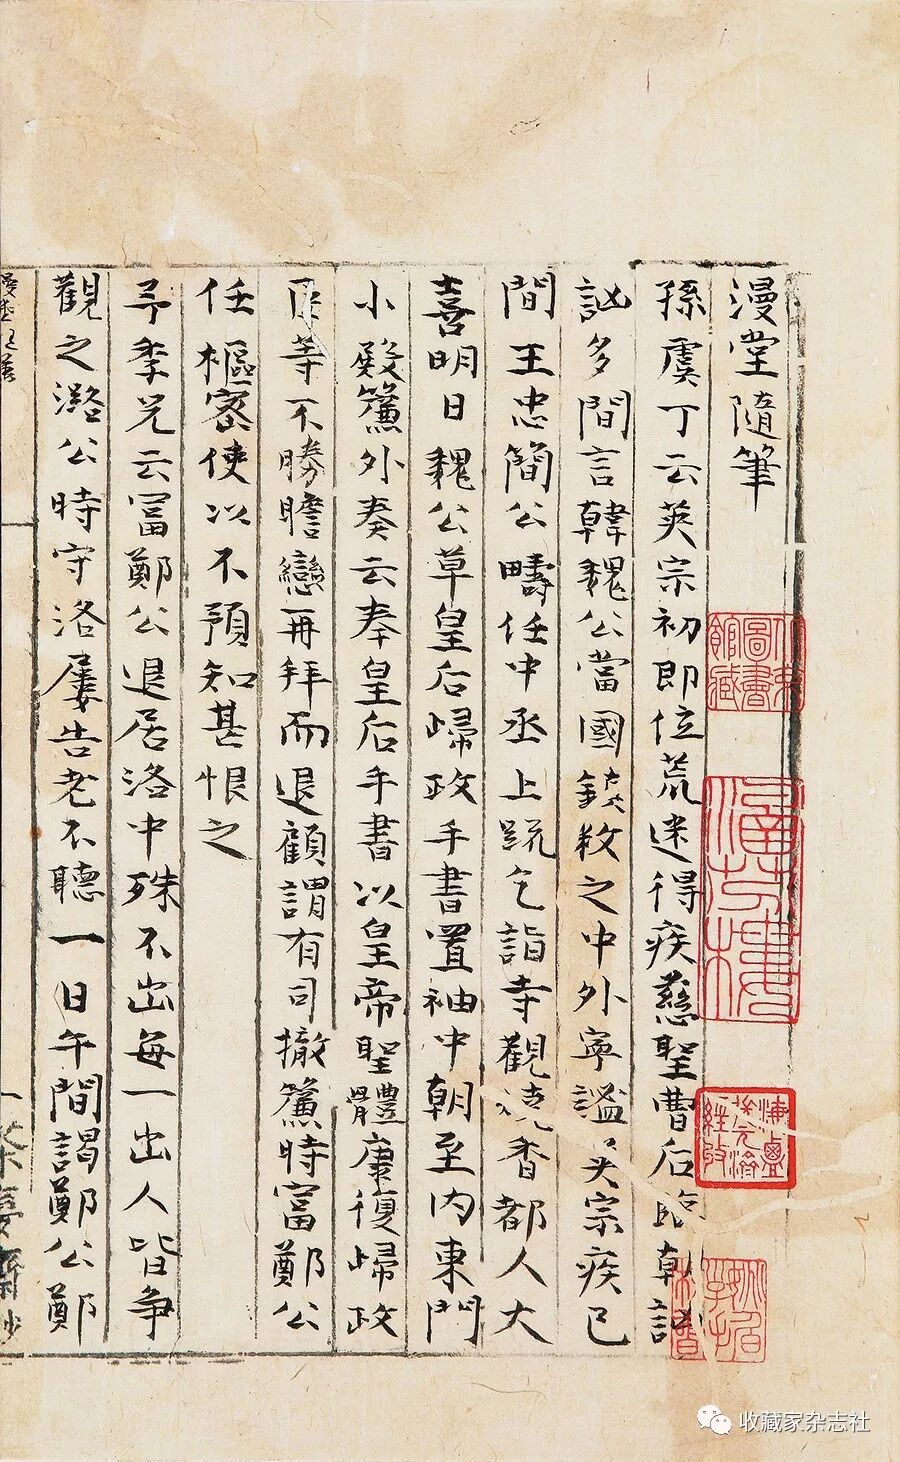 漫堂隨筆
孫虞丁云英宗初即位荒迷得疾慈聖曹后臨朝
訩多間言韓魏公當國鎮敉之中外寧謐英宗疾已
間王忠簡公疇任中丞上疏乞詣寺觀燒香都人大
喜明日魏公草皇后歸政手書置袖中朝至內東門
小殿簾外奏云奉皇后手書以皇帝聖體康復歸政
臣等不勝瞻戀再拜而退顧謂有司撤簾時富鄭公
任樞密使以不預知甚恨之
于季兄云富鄭公退居洛中殊不出每一出人皆争
觀之潞公時守洛屢告老不聽一日午間謁鄭公鄭
涵芬樓
海鹽張元濟經收
收藏家杂志社